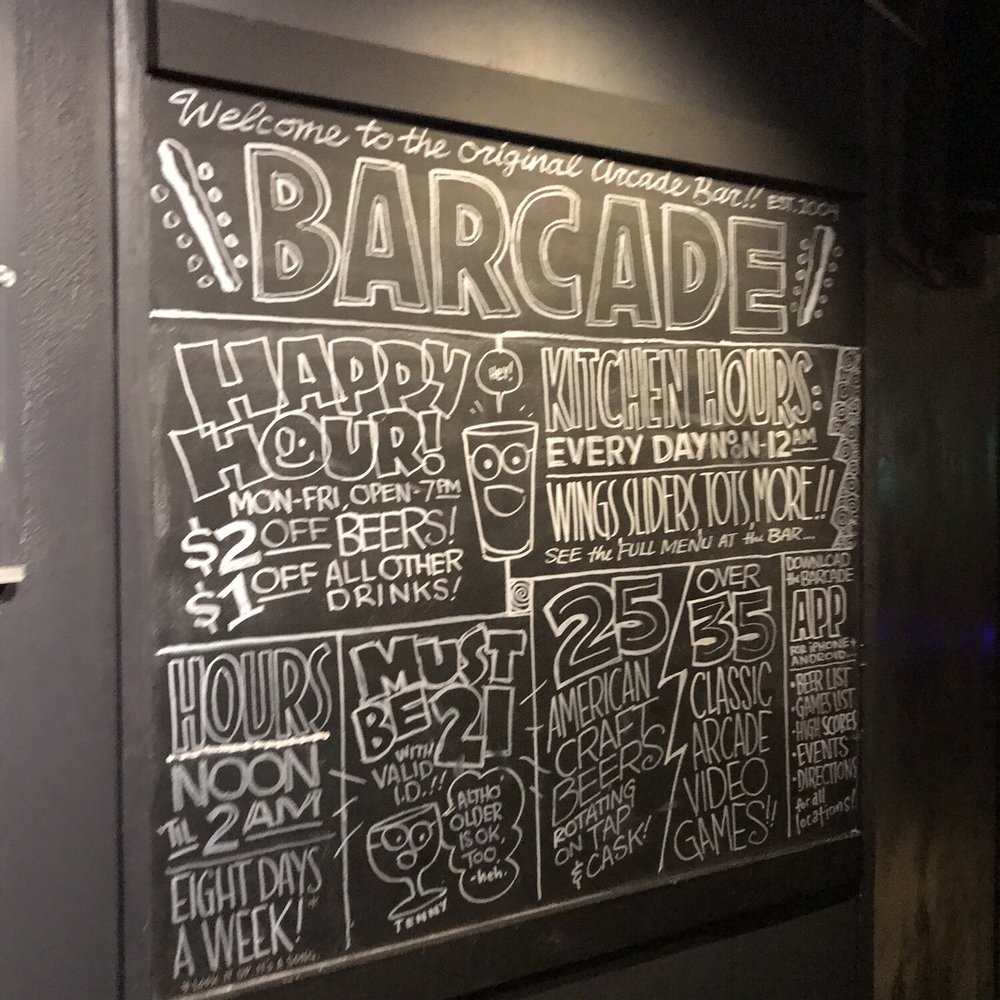 Welcome to the original Arcade Bar!! EST. 2004
BARCADE
HAPPY
HOUR!
MON-FRI, OPEN-7PM
$2 OFF BEERS!
$1 OFF ALL OTHER
DRINKS!
HEY!
KITCHEN HOURS:
EVERY DAY NOON-12AM
WINGS, SLIDERS, TOTS, MORE!!
SEE the FULL MENU AT the BAR...
HOURS
NOON
TIL 2AM
EIGHT DAYS
A WEEK!*
MUST
BE 21
WITH
VALID
I.D.!!
ALTHO
OLDER
IS OK,
TOO.
-heh.
TENNY
25
AMERICAN
CRAFT
BEERS
ROTATING
ON TAP
& CASK!
OVER
35
CLASSIC
ARCADE
VIDEO
GAMES!!
DOWNLOAD
the BARCADE
APP
FOR iPHONE +
ANDROID
•BEER LIST
•GAMES LIST
•HIGH SCORES
•EVENTS
•DIRECTIONS
for all
locations!